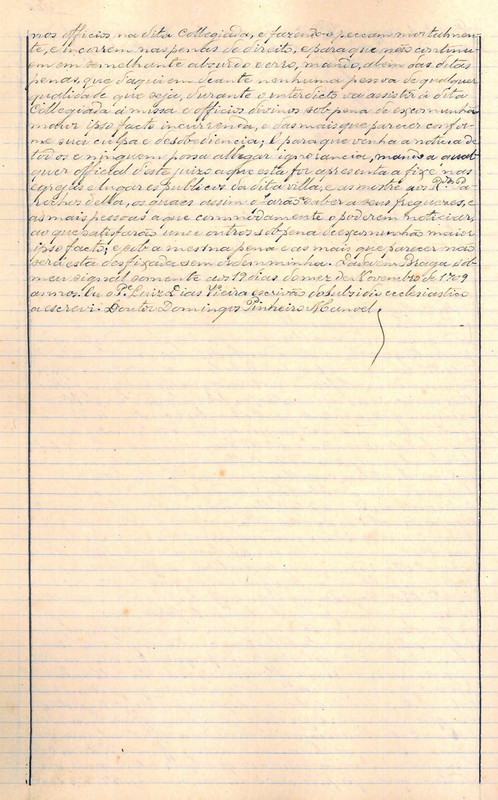 nos officios, na dita Collegiada, e fazendo-o peccam mortalmen-
te, e incorrem nas penas de direito, e para que não continu-
em em semelhante absurdo e erro, mando, alem das ditas
penas, que d'aqui em deante nenhuma pessoa de qualquer
qualidade que seja, durante o interdicto va assistir á dita
Collegiada á missa e officios divinos sob pena de excomunhão
maior ipso facto incurrenda, e das mais que parecer confor-
me sua culpa e desobediencia; E para que venha a noticia de
todos e ninguem possa allegar ignorancia, mando a qual-
quer official d'este juizo a que esta for apresentada a fixe nas
egrejas e lugares publicos da dita villa, e as mostre aos R.dos Pa-
rochos della, os quaes assim o farão saber a seus freguezes, e
as mais pessoas a que commodamente o poderem noticiar,
ao que satisfarão uns e outros sob pena de excomunhão maior
ipso facto; e sob a mesma pena e as mais que parecer não
será esta desfixada sem ordem minha. Dada em Braga sob
meu signal somente aos 19 dias do mez de Novembro de 1709
annos. Eu o P.e Luiz Dias Vieira escrivão do subsidio ecclesiastico
a escrevi. Doutor Domingos Pinheiro Manoel.